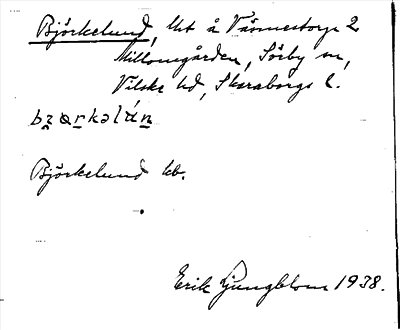 Björkelund, lht å Vännestorp 2
Mellomgården, Sörby sn,
Vilske hd, Skaraborgs l.
bʒɵrkəlún
Björkelund kb.
Erik Ljungblom 1938.